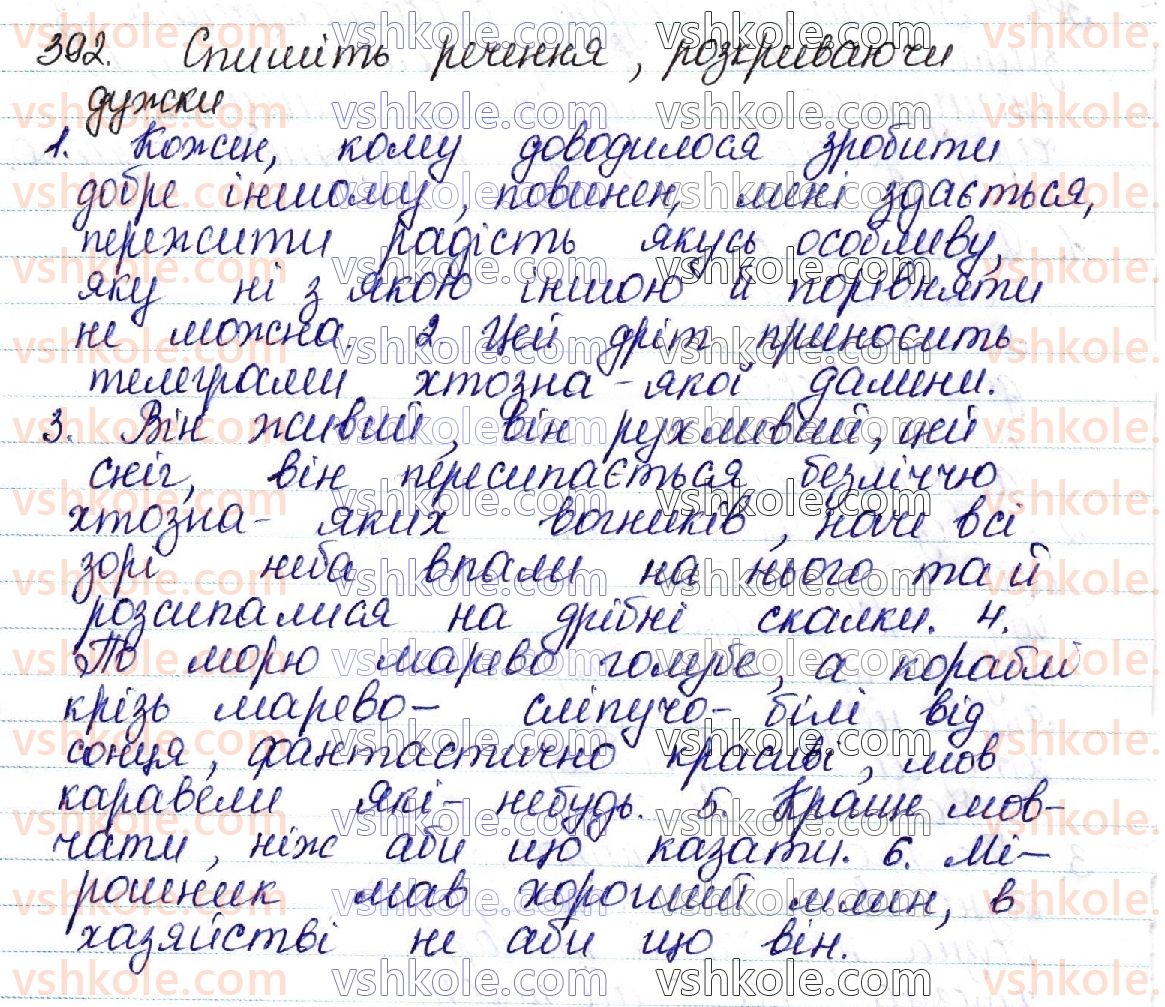 392. Спишіть речення, розкриваючи
дужки
1. Кожен, кому доводилося зробити
добре іншому, повинен, мені здається,
пережити радість якусь особливу,
яку ні з якою іншою й порівняти
не можна. 2. Цей дріт приносить
телеграми хтозна-якої далини.
3. Він живий, він рухливий, цей
сніг, він пересипається безліччю
хтозна-яких вогників, наче всі
зорі неба впали на нього та й
розсипалися на дрібні скалки. 4.
По морю марево голубе, а кораблі
крізь марево - сліпучо-білі від
сонця, фантастично красиві, мов
каравели які-небудь. 5. Краще мов-
чати, ніж аби що казати. 6. Мі-
рошник мав хороший млин, в
хазяйстві не аби що він.